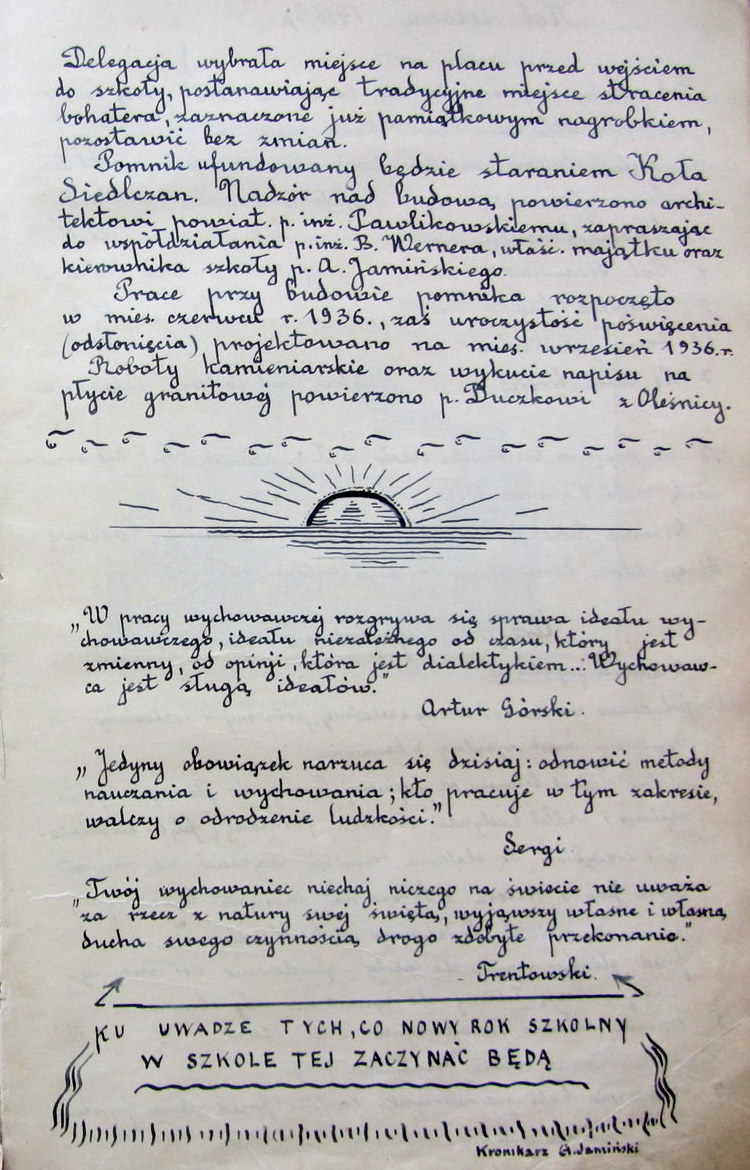 Delegacja wybrała miejsce na placu przed wejściem
do szkoły, postanawiając tradycyjne miejsce stracenia
bohatera, zaznaczone już pamiątkowym nagrobkiem,
pozostawić bez zmian.
Pomnik ufundowany będzie staraniem Koła
Siedlczan. Nadzór nad budową powierzono archi-
tektowi powiat. p. inż. Pawlikowskiemu, zapraszając
do współdziałania p. inż. B. Wernera, właśc. majątku oraz
kierownika szkoły p. A. Jamińskiego.
Prace przy budowie pomnika rozpoczęto
w mies. czerwcu r. 1936., zaś uroczystość poświęcenia
(odsłonięcia) projektowano na mies. wrzesień 1936.r.
Roboty kamieniarskie oraz wykucie napisu na
płycie granitowej powierzono p. Duczkowi z Oleśnicy.
„W pracy wychowawczej rozgrywa się sprawa ideału wy-
chowawczego, ideału niezależnego od czasu, który jest
zmienny, od opinji, która jest dialektykiem... Wychowaw-
ca jest sługą ideałów."
Artur Górski.
„Jedyny obowiązek narzuca się dzisiaj: odnowić metody
nauczania i wychowania; kto pracuje w tym zakresie,
walczy o odrodzenie ludzkości."
Sergi
„Twój wychowaniec niechaj niczego na świecie nie uważa
za rzecz z natury swej świętą, wyjąwszy własne i własną
ducha swego czynnością drogo zdobyte przekonanie."
Trentowski.
KU UWADZE TYCH, CO NOWY ROK SZKOLNY
W SZKOLE TEJ ZACZYNAĆ BĘDĄ
Kronikarz A. Jamiński